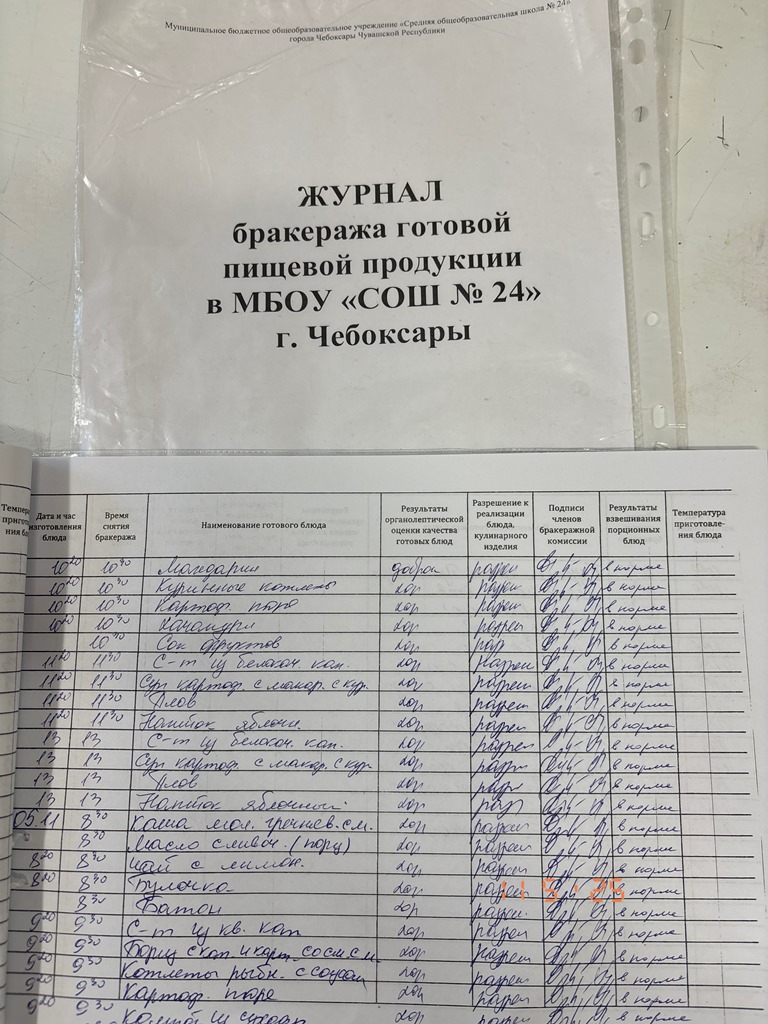 Муниципальное бюджетное общеобразовательное учреждение «Средняя общеобразовательная школа № 24»
города Чебоксары Чувашской Республики
ЖУРНАЛ
бракеража готовой
пищевой продукции
в МБОУ «СОШ № 24»
г. Чебоксары
Дата и час изготовления блюда Время снятия бракеража Наименование готового блюда Результаты органолептической оценки качества готовых блюд Разрешение к реализации блюда, кулинарного изделия Подписи членов бракеражной комиссии Результаты взвешивания порционных блюд Температура приготовле- ния блюда
10 20 10 30 Мандарин в норме
10 20 10 30 Куриные котлеты хор в норме
10 20 10 30 Картоф. пюре хор в норме
10 20 10 30 хор разреш в норме
10 30 Сок фруктов хор разр в норме
11 20 11 30 С-т из белокоч. кап. хор разреш в норме
11 20 11 30 Суп картоф. с макар. с кур. хор разреш в норме
11 20 11 30 Плов хор разреш в норме
11 20 11 30 Напиток яблочн. хор разреш в норме
13 13 С-т из белокоч. кап. хор разреш в норме
13 13 Суп картоф. с макар. с кур хор разр в норме
13 13 Плов хор разр в норме
13 13 Напиток яблочный хор разр в норме
05.11 8 30 Каша мол. гречнев. с м. хор разреш в норме
8 30 Масло сливоч. (порц) хор разреш в норме
8 20 8 30 Чай с лимон. хор разреш в норме
8 20 8 30 Булочка хор разреш в норме
11 5 '25
8 30 Батон хор разреш в норме
9 20 9 30 С-т из кв. кап хор разреш в норме
9 20 9 30 Борщ с кап. и карт. со см. с м. хор разреш в норме
9 20 9 30 Котлеты рыбн. с соусом хор разреш в норме
9 20 9 30 Картоф. пюре хор разреш в норме
9 20 9 30 хор разреш в норме